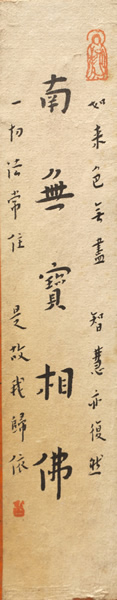 如来色無盡 智慧亦復然
南無寶相佛
一切法常住 是故我歸依